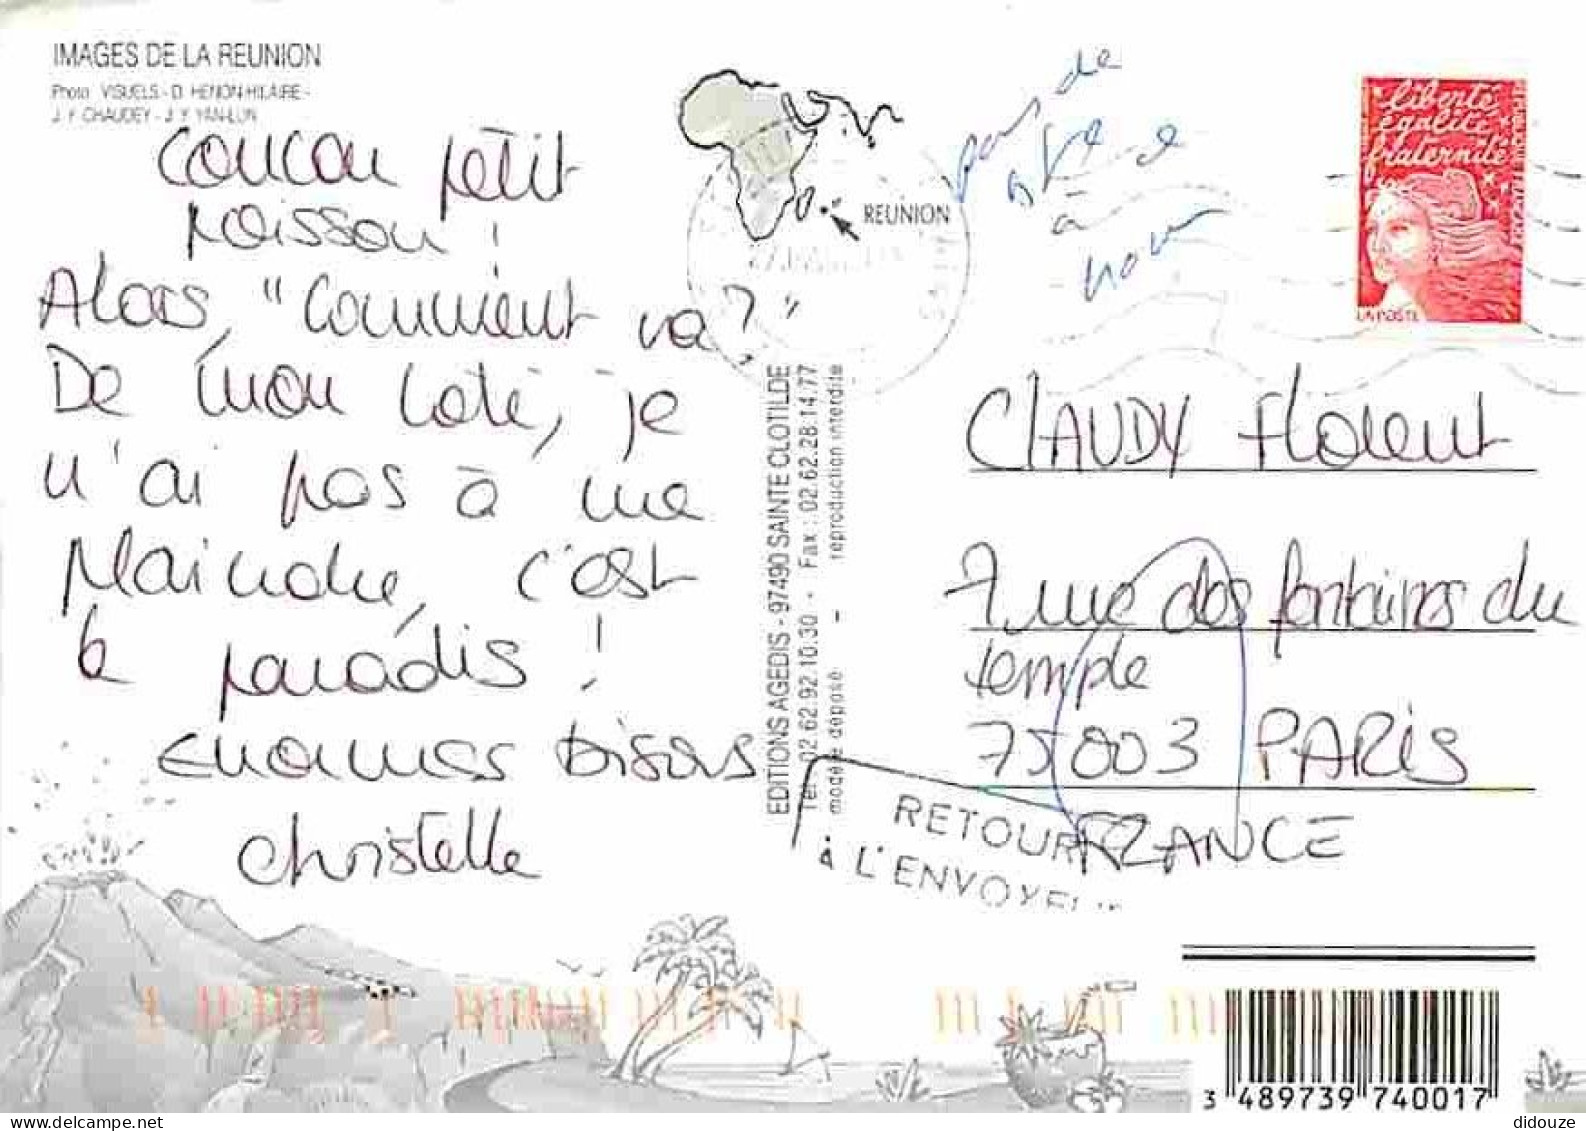 IMAGES DE LA REUNION
Photo : VISUELS - D. HENON-HILAIRE -
J. Y. CHAUDEY - J. Y. YAN-LUN
Coucou petit
poisson !
Alors, "Comment va ?"
De mon côté, je
n'ai pas à me
plaindre, c'est
le paradis !
Enormes bisous
Christelle
REUNION
EDITIONS AGEDIS - 97490 SAINTE CLOTILDE
Tél. 02.62.92.10.30 - Fax : 02.62.28.14.77
modèle déposé - reproduction interdite
pas de
à ce
nom
liberté
égalité
fraternité
LA POSTE
CLAUDY Florent
7 rue des fontaines du
temple
75003 PARIS
FRANCE
RETOUR
à L'ENVOYEUR
3 489739 740017
didouze